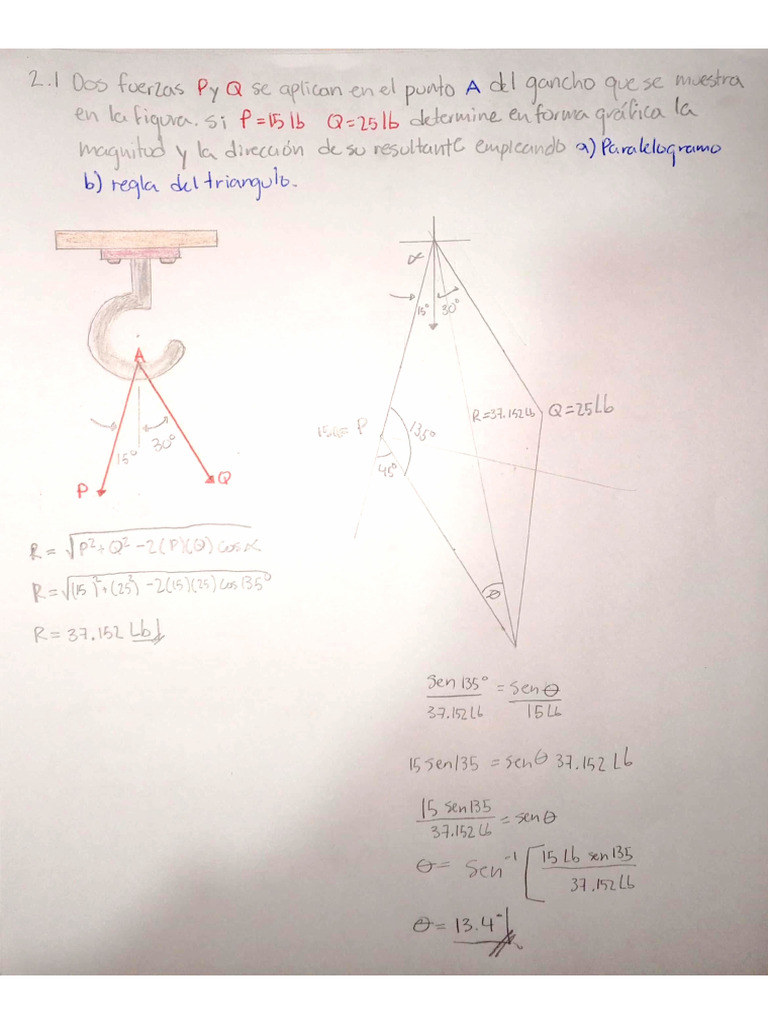 2.1 Dos fuerzas P y Q se aplican en el punto A del gancho que se muestra
en la figura. si P=15 lb Q=25 lb determine en forma gráfica la
magnitud y la dirección de su resultante empleando a) Paralelogramo
b) regla del triangulo.
α
15° 30°
A
R=37.152 Lb Q=25 Lb
15 lb= P 135°
45°
15° 30°
P Q
θ
R = √P²+Q²-2(P)(Q) cos α
R = √(15)²+(25²)-2(15)(25) cos 135°
R = 37.152 Lb
sen 135° = sen θ
37.152 Lb 15 Lb
15 sen 135 = sen θ 37.152 Lb
15 sen 135 = sen θ
37.152 Lb
θ = sen⁻¹ [15 Lb sen 135
37.152 Lb
θ = 13.4°